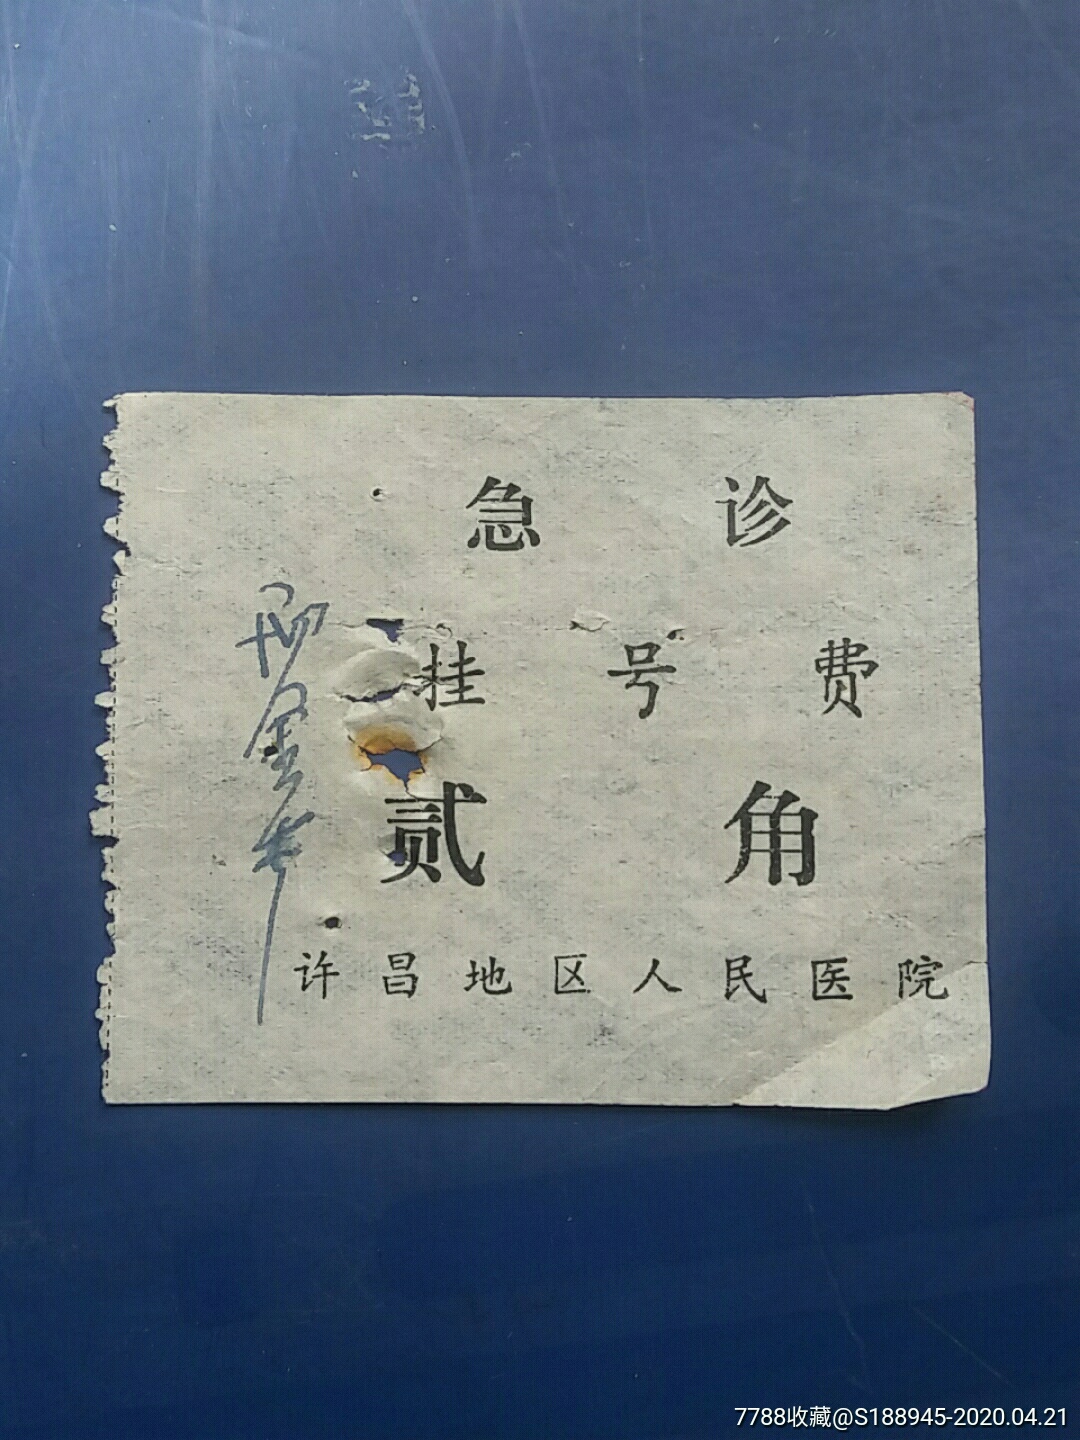 急诊
挂号费
贰角
许昌地区人民医院
7788收藏@S188945-2020.04.21